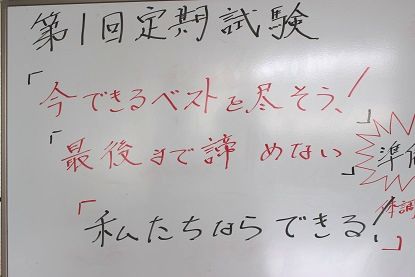 第1回定期試験
「今できるベストを尽そう!」
「最後まで諦めない」
準備
体調
「私たちならできる!」